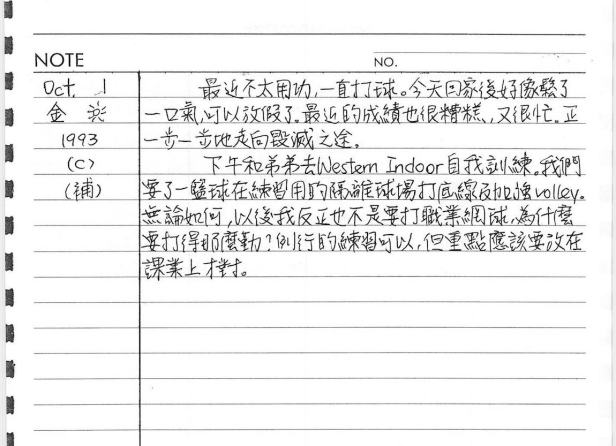 NOTE
NO.
Oct. 1
最近不太用功,一直打球。今天回家後好像鬆了
金
一口氣,可以放假了。最近的成績也很糟糕,又很忙。正
1993
一步一步地走向毀滅之途。
(C)
下午和弟弟去Western Indoor自我訓練。我們
(補)
要了一籃球在練習用的隔離球場打底線及加強volley。
無論如何,以後我反正也不是要打職業網球,為什麼
要打得那麼勤?例行的練習可以,但重點應該要放在
課業上才對。